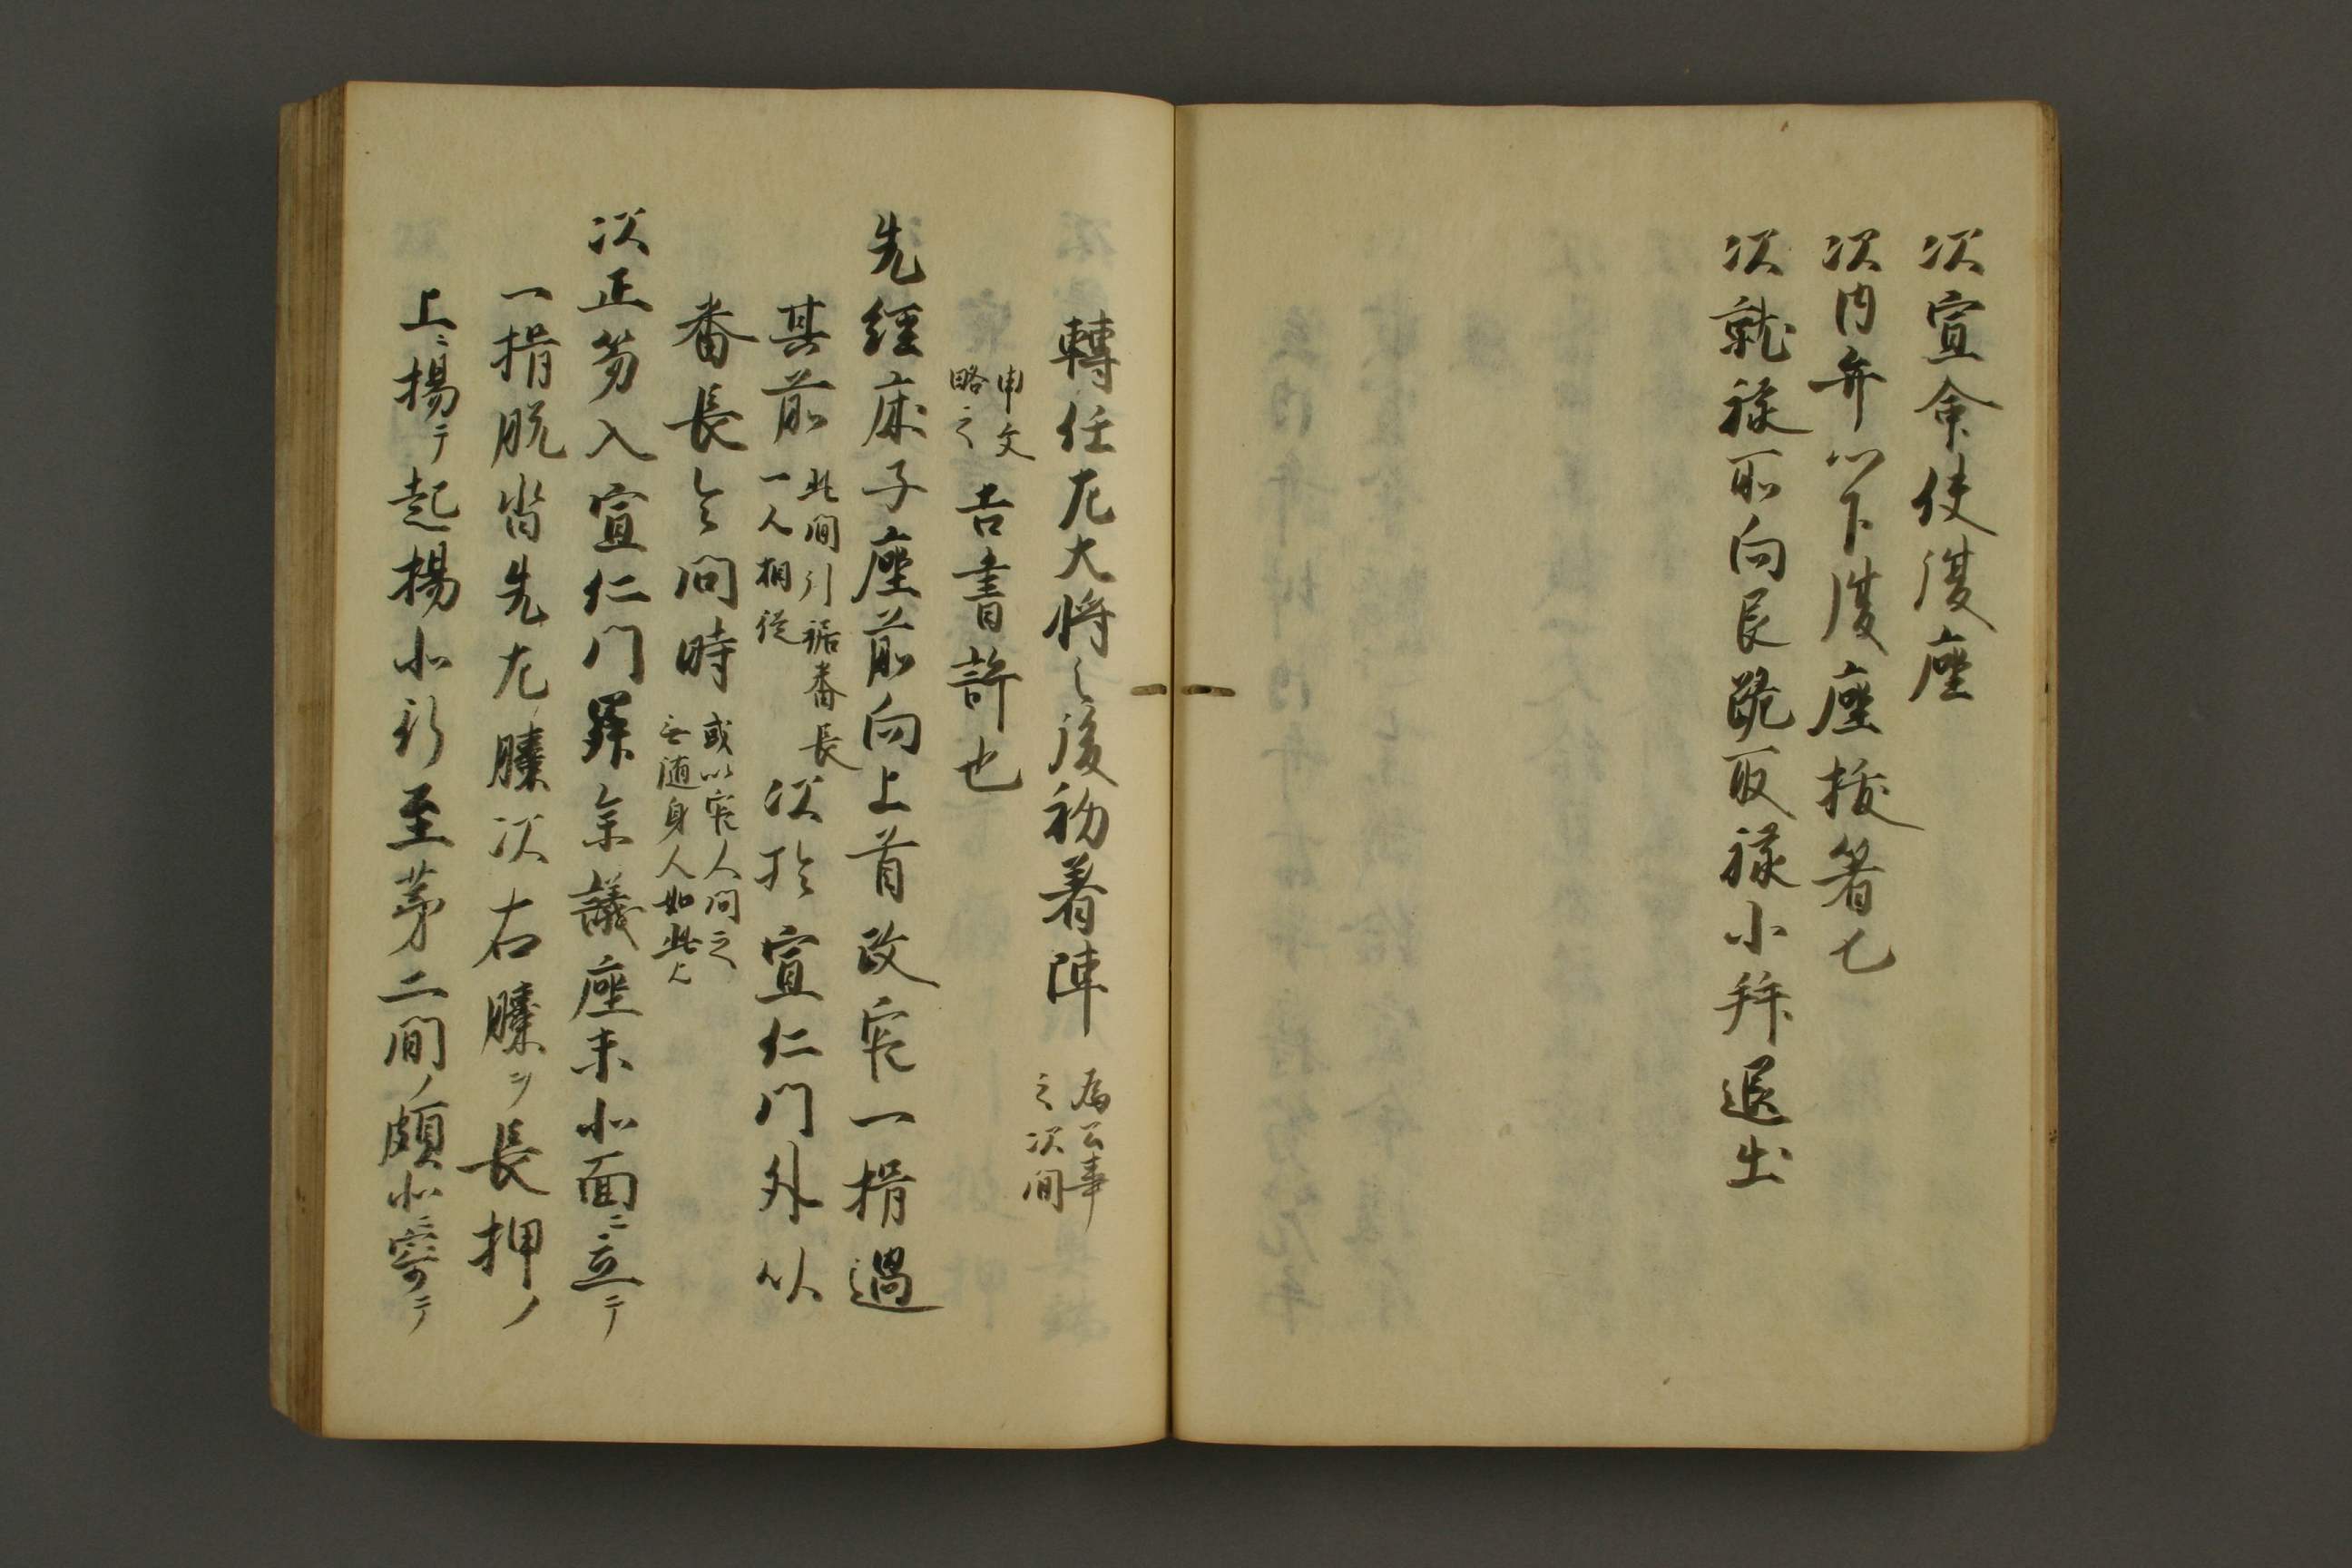 次宣命使復座
次内弁以下復座抜箸匕
次就禄所向艮跪取禄小拜退出
轉任左大将之後初着陣 為公事之次間
申文略之 吉書許也
先經床子座前向上首改定一揖過
其前 此間引裾番長一人相従 次於宣仁門外以
番長令問時 或以官人問之無随身人如此
次正笏入宣仁門縡参議座末北面ニ立テ
一揖脱沓先左膝次右膝ヲ長押ノ
上ニ揚テ起揚北行至苐二間ノ頗北ニ寄テ